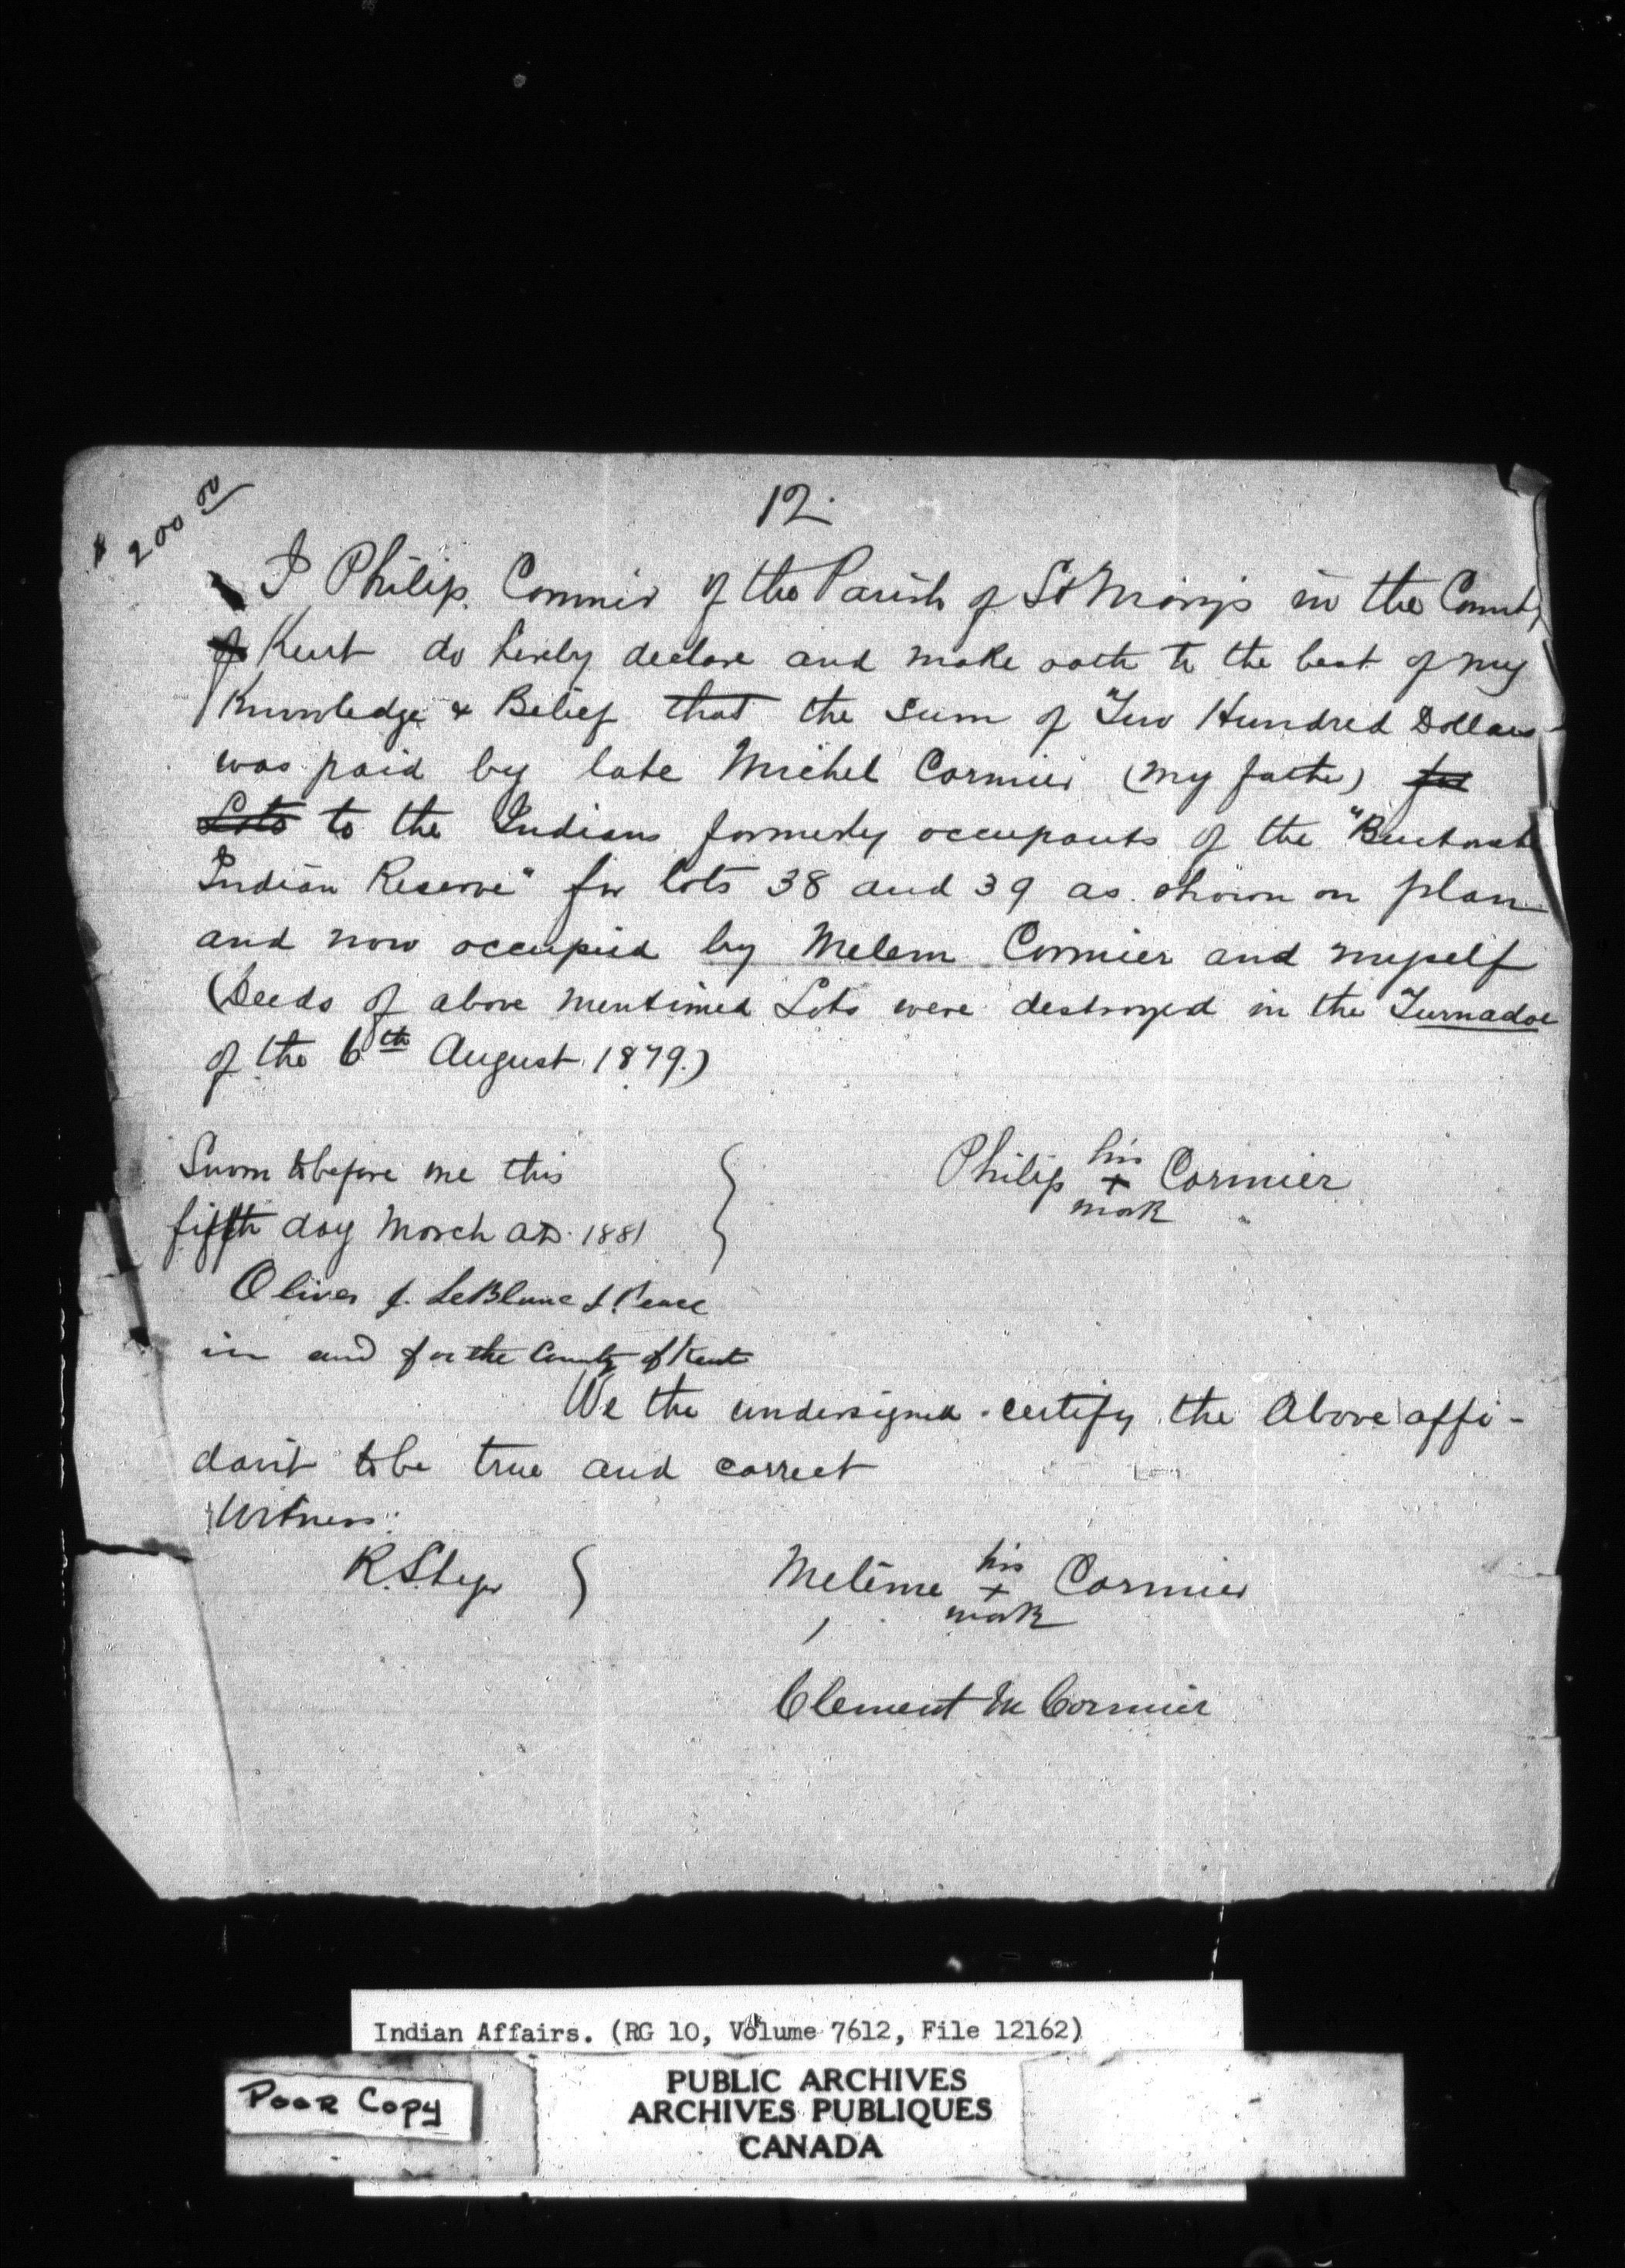 $ 200 00
12.
I Philip Cormier of the Parish of St Mary's in the County
of Kent do hereby declare and make oath to the best of my
Knowledge & Belief that the sum of Two Hundred Dollars
was paid by late Michel Cormier (my father) for
Lots to the Indians formerly occupants of the "Buctouche
Indian Reserve" for lots 38 and 39 as shown on plan
and now occupied by Melem Cormier and myself
(Deeds of above mentioned Lots were destroyed in the Turnadoe
of the 6th August 1879.)
Sworn to before me this
fifth day March AD. 1881
Philip his + mark Cormier
Oliver J. LeBlanc J. Peace
in and for the County of Kent
We the undersigned certify the Above affi-
davit to be true and correct
Witness:
R. S.
Melême his + mark Cormier
Clement M Cormier
Indian Affairs. (RG 10, Volume 7612, File 12162)
POOR COPY
PUBLIC ARCHIVES
ARCHIVES PUBLIQUES
CANADA